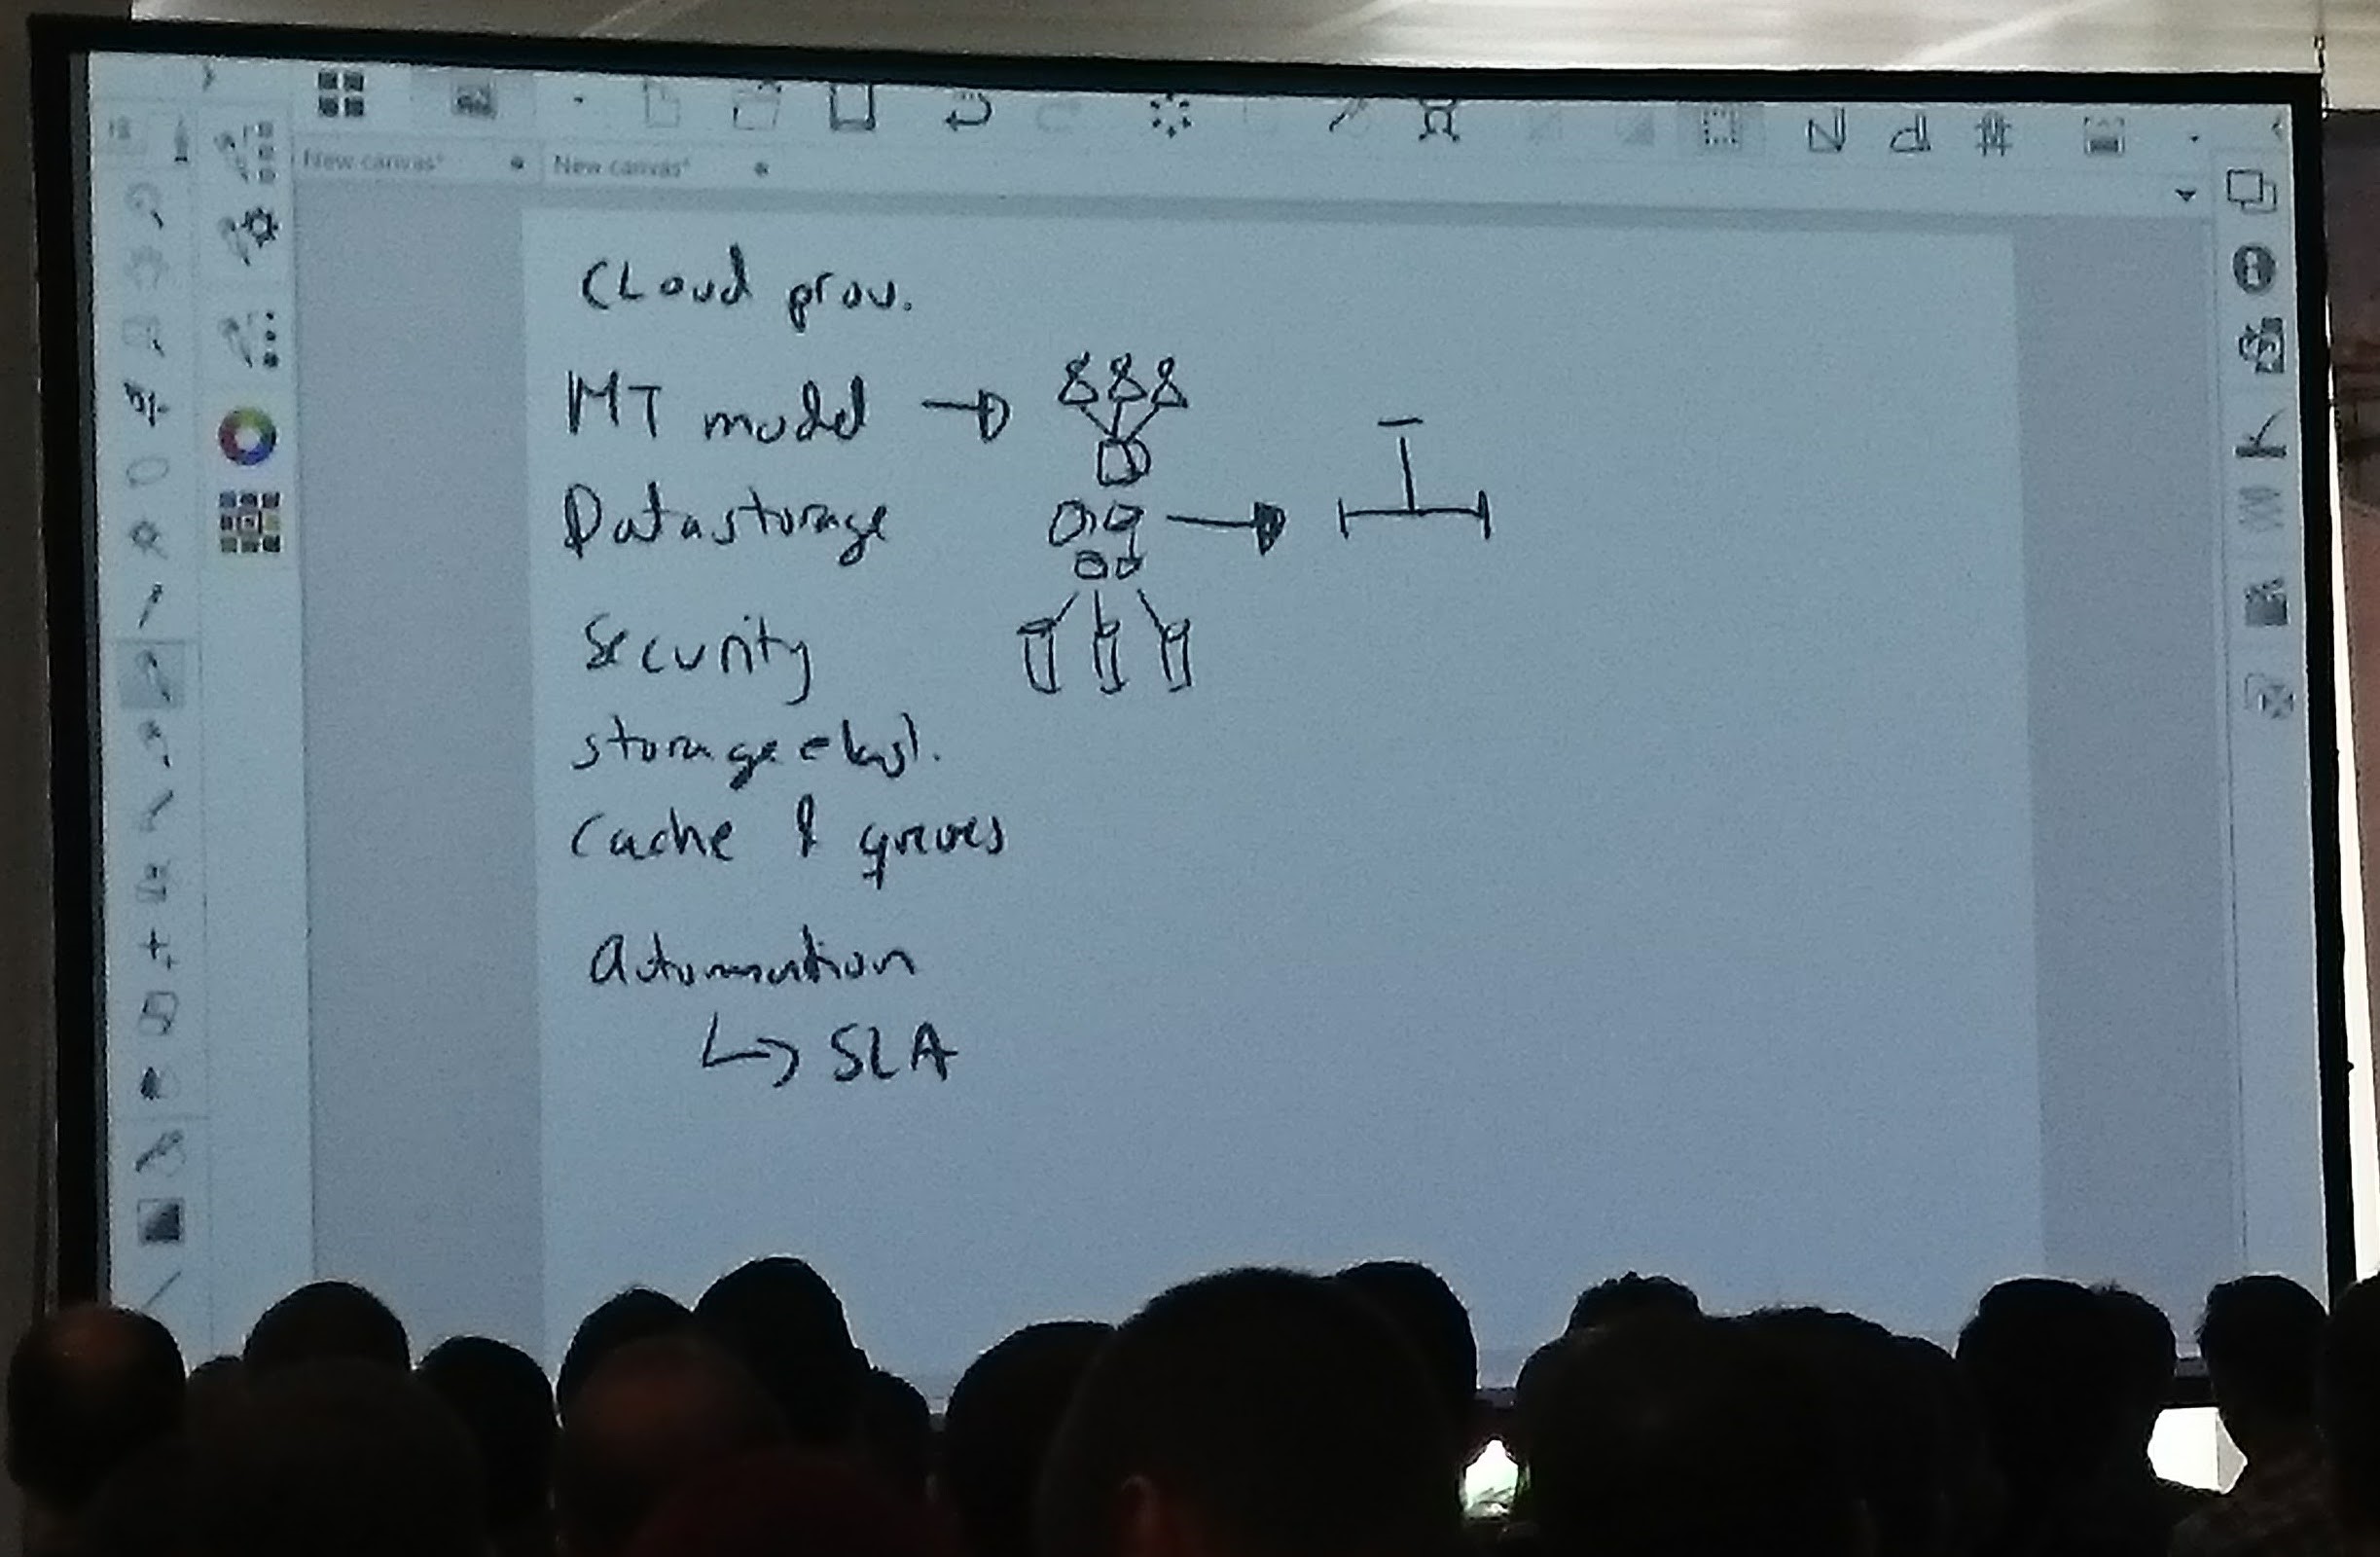 New canvas* New canvas*
CLoud prov.
MT model
Datastorage
Security
storage elast.
Cache & queues
Automation
SLA